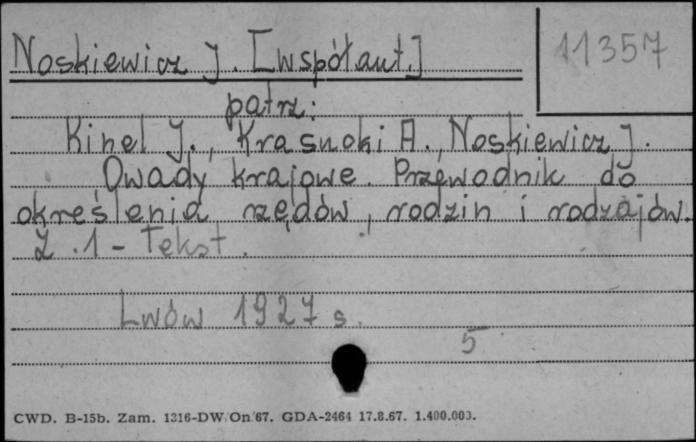 Noskiewicz J. [współaut.]
11357
patrz:
Kinel J., Krasucki A., Noskiewicz J.
Owady krajowe. Przewodnik do
określenia rzędów, rodzin i rodzajów.
Z. 1 - Tekst.
Lwów 1927 s.
5
CWD. B-15b. Zam. 1316-DW/On/67. GDA-2464 17.8.67. 1.400.003.